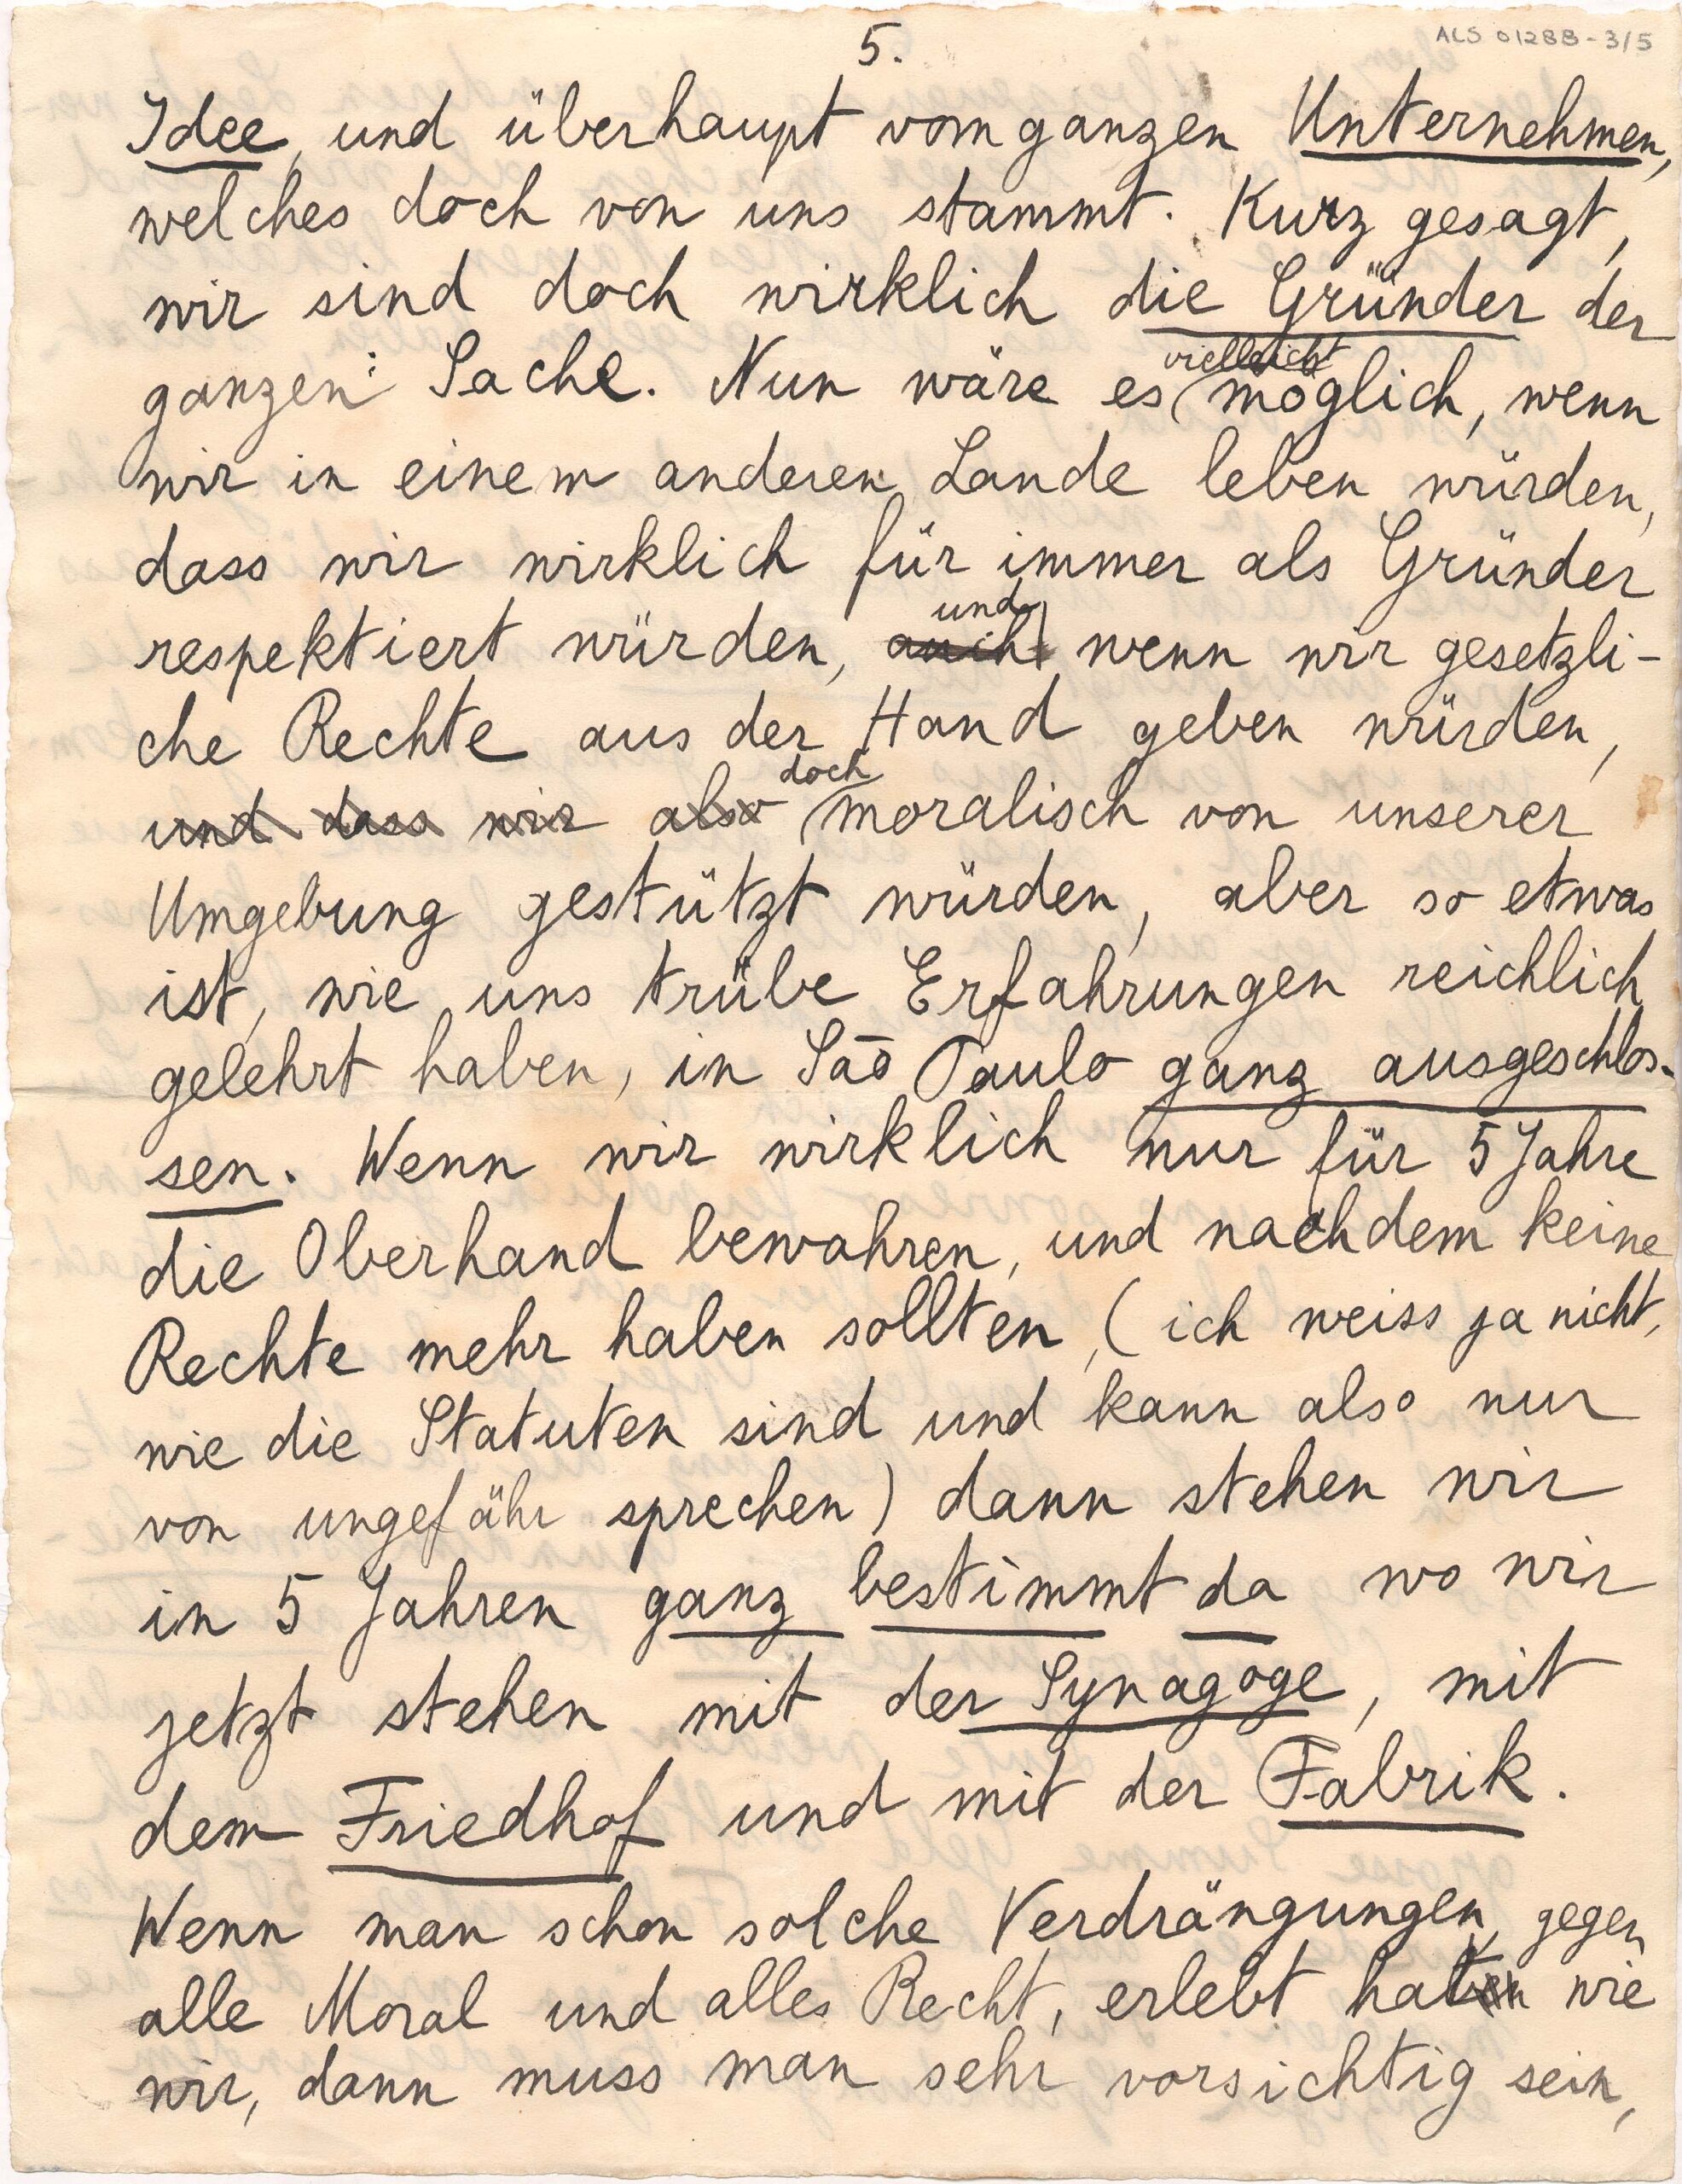 5.
ALS 01288-3/5
Idee, und überhaupt vom ganzen Unternehmen,
welches doch von uns stammt. Kurz gesagt,
wir sind doch wirklich die Gründer der
ganzen Sache. Nun wäre es vielleicht möglich, wenn
wir in einem anderen Lande leben würden,
dass wir wirklich für immer als Gründer
respektiert würden, auch und wenn wir gesetzli-
che Rechte aus der Hand geben würden,
und dass wir also doch moralisch von unserer
Umgebung gestützt würden, aber so etwas
ist, wie uns trübe Erfahrungen reichlich
gelehrt haben, in São Paulo ganz ausgeschlos-
sen. Wenn wir wirklich nur für 5 Jahre
die Oberhand bewahren, und nachdem keine
Rechte mehr haben sollten, (ich weiss ja nicht,
wie die Statuten sind und kann also nur
von ungefähr sprechen) dann stehen wir
in 5 Jahren ganz bestimmt da wo wir
jetzt stehen mit der Synagoge, mit
dem Friedhof und mit der Fabrik.
Wenn man schon solche Verdrängungen, gegen
alle Moral und alles Recht, erlebt hat wie
wir, dann muss man sehr vorsichtig sein,